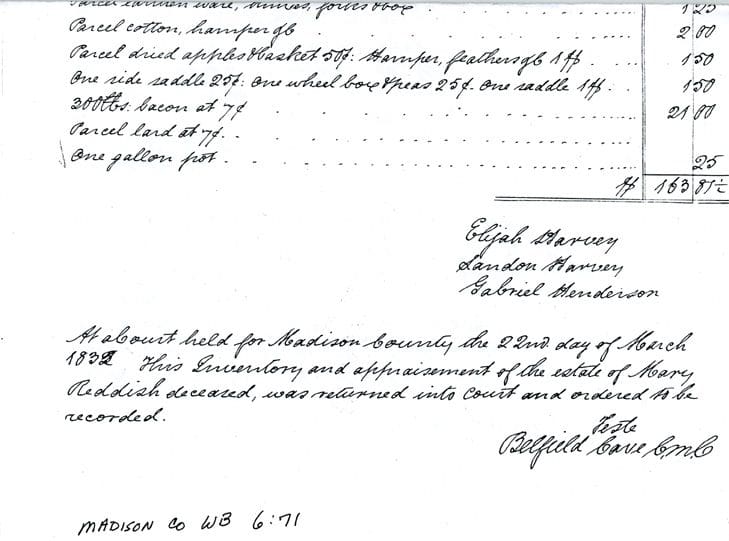 Parcel earthen ware, knives, forks & box . 1 25
Parcel cotton, hamper &c . . . 2 00
Parcel dried apples & basket 50¢: Hamper, feathers &c 1$ . . . 1 50
One side saddle 25¢: One wheel box & peas 25¢. One saddle 1$ . . 1 50
300 lbs. bacon at 7¢ . . . 21 00
Parcel lard at 7¢ . . .
One gallon pot . . . 25
$ 163 81½
Elijah Harvey
Landon Harvey
Gabriel Henderson
At a Court held for Madison County the 22nd. day of March
1832 This Inventory and appraisement of the estate of Mary
Reddish deceased, was returned into Court and ordered to be
recorded.
Teste
Belfield Cave C.M.C
MADISON CO WB 6:71